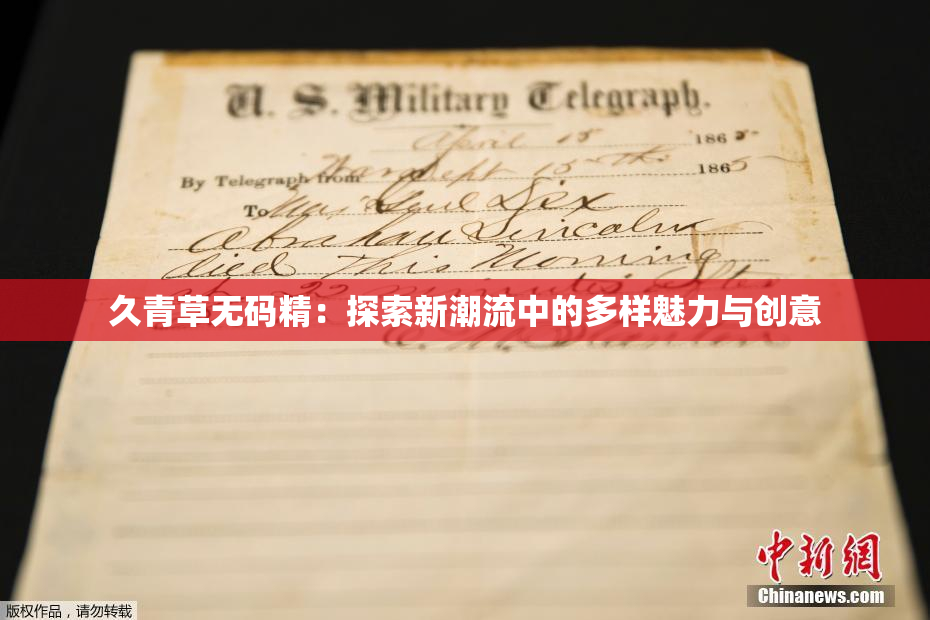 U. S. Military Telegraph.
April 15 1865
By Telegraph from War Dept 15th 1865
To Maj Genl Dix
Abraham Lincoln
died This Morning
at 22 minutes after
久青草无码精：探索新潮流中的多样魅力与创意
E. M. Stanton
中新网
Chinanews.com
版权作品，请勿转载